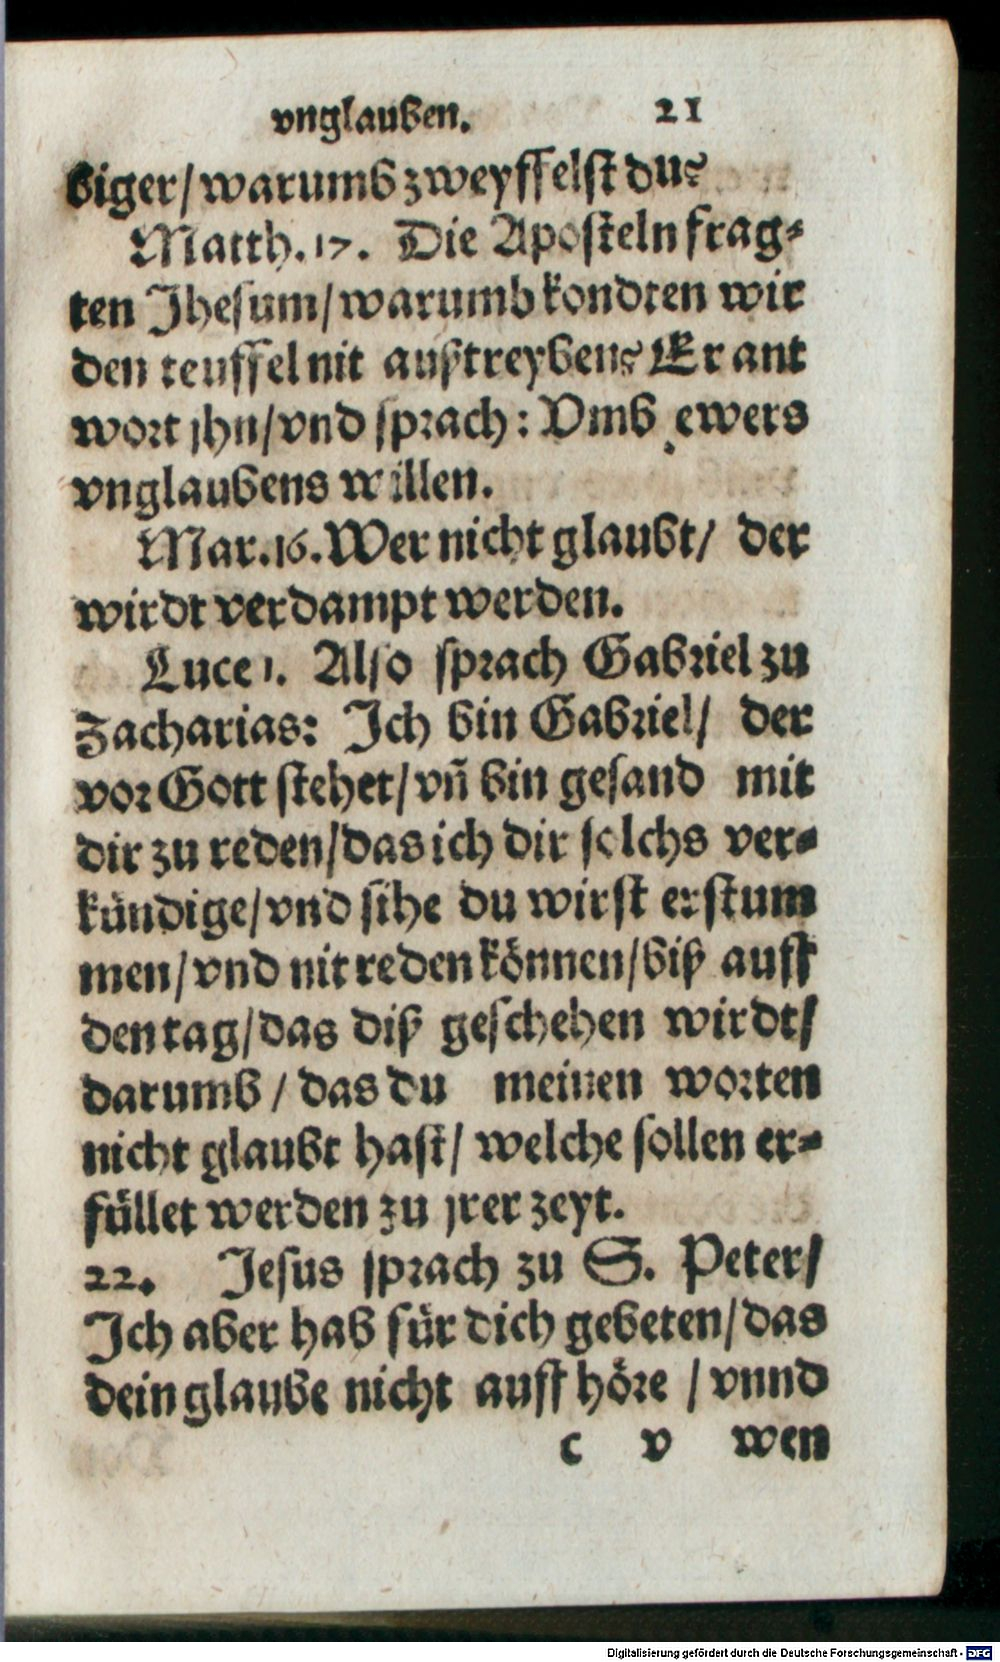 vnglauben. 21
biger/ warumb zweyffelst du?
Matth. 17. Die Aposteln frag-
ten Jhesum/ warumb kondten wir
den teuffel nit außtreyben? Er ant
wort jhn/ vnd sprach: Vmb ewers
vnglaubens willen.
Mar. 16. Wer nicht glaubt/ der
wirdt verdampt werden.
Luce 1. Also sprach Gabriel zu
Zacharias: Ich bin Gabriel/ der
vor Gott stehet/ vñ bin gesand mit
dir zu reden/ das ich dir solchs ver-
kündige/ vnd sihe du wirst erstum
men/ vnd nit reden können/ biß auff
den tag/ das diß geschehen wirdt/
darumb/ das du meinen worten
nicht glaubt hast/ welche sollen er-
füllet werden zu jrer zeyt.
22. Jesus sprach zu S. Peter/
Ich aber hab für dich gebeten/ das
dein glaube nicht auff höre/ vnnd
c v wen
Digitalisierung gefördert durch die Deutsche Forschungsgemeinschaft - DFG